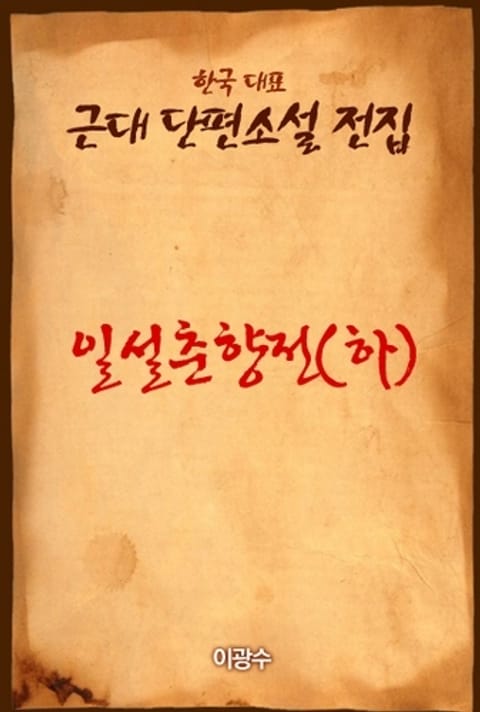 한국 대표
근대 단편소설 전집
일설춘향전(하)
이광수